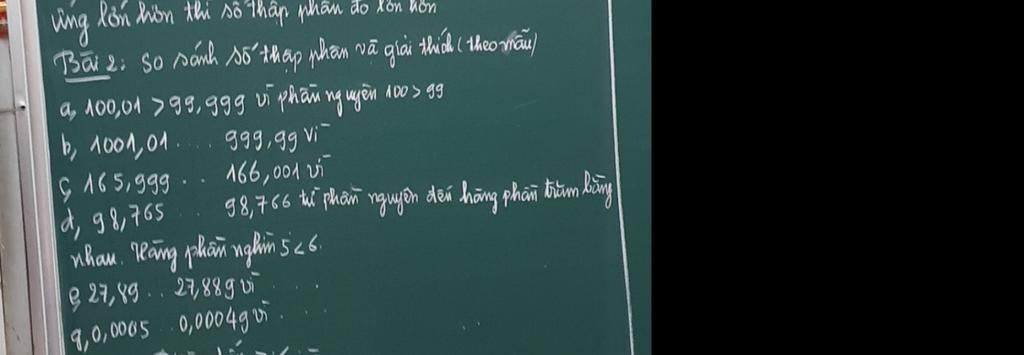 ứng lớn hơn thì số thập phân đó lớn hơn
Bài 2: So sánh số thập phân và giải thích (theo mẫu)
a, 100,01 > 99,999 vì phần nguyên 100 > 99
b, 1001,01 .... 999,99 vì
c, 165,999 .. 166,001 vì
d, 98,765 .. 98,766 từ phần nguyên đến hàng phần trăm bằng
nhau. Hàng phần nghìn 5 < 6.
e, 27,89 .. 27,889 vì ....
g, 0,0005 .. 0,00049 vì ....